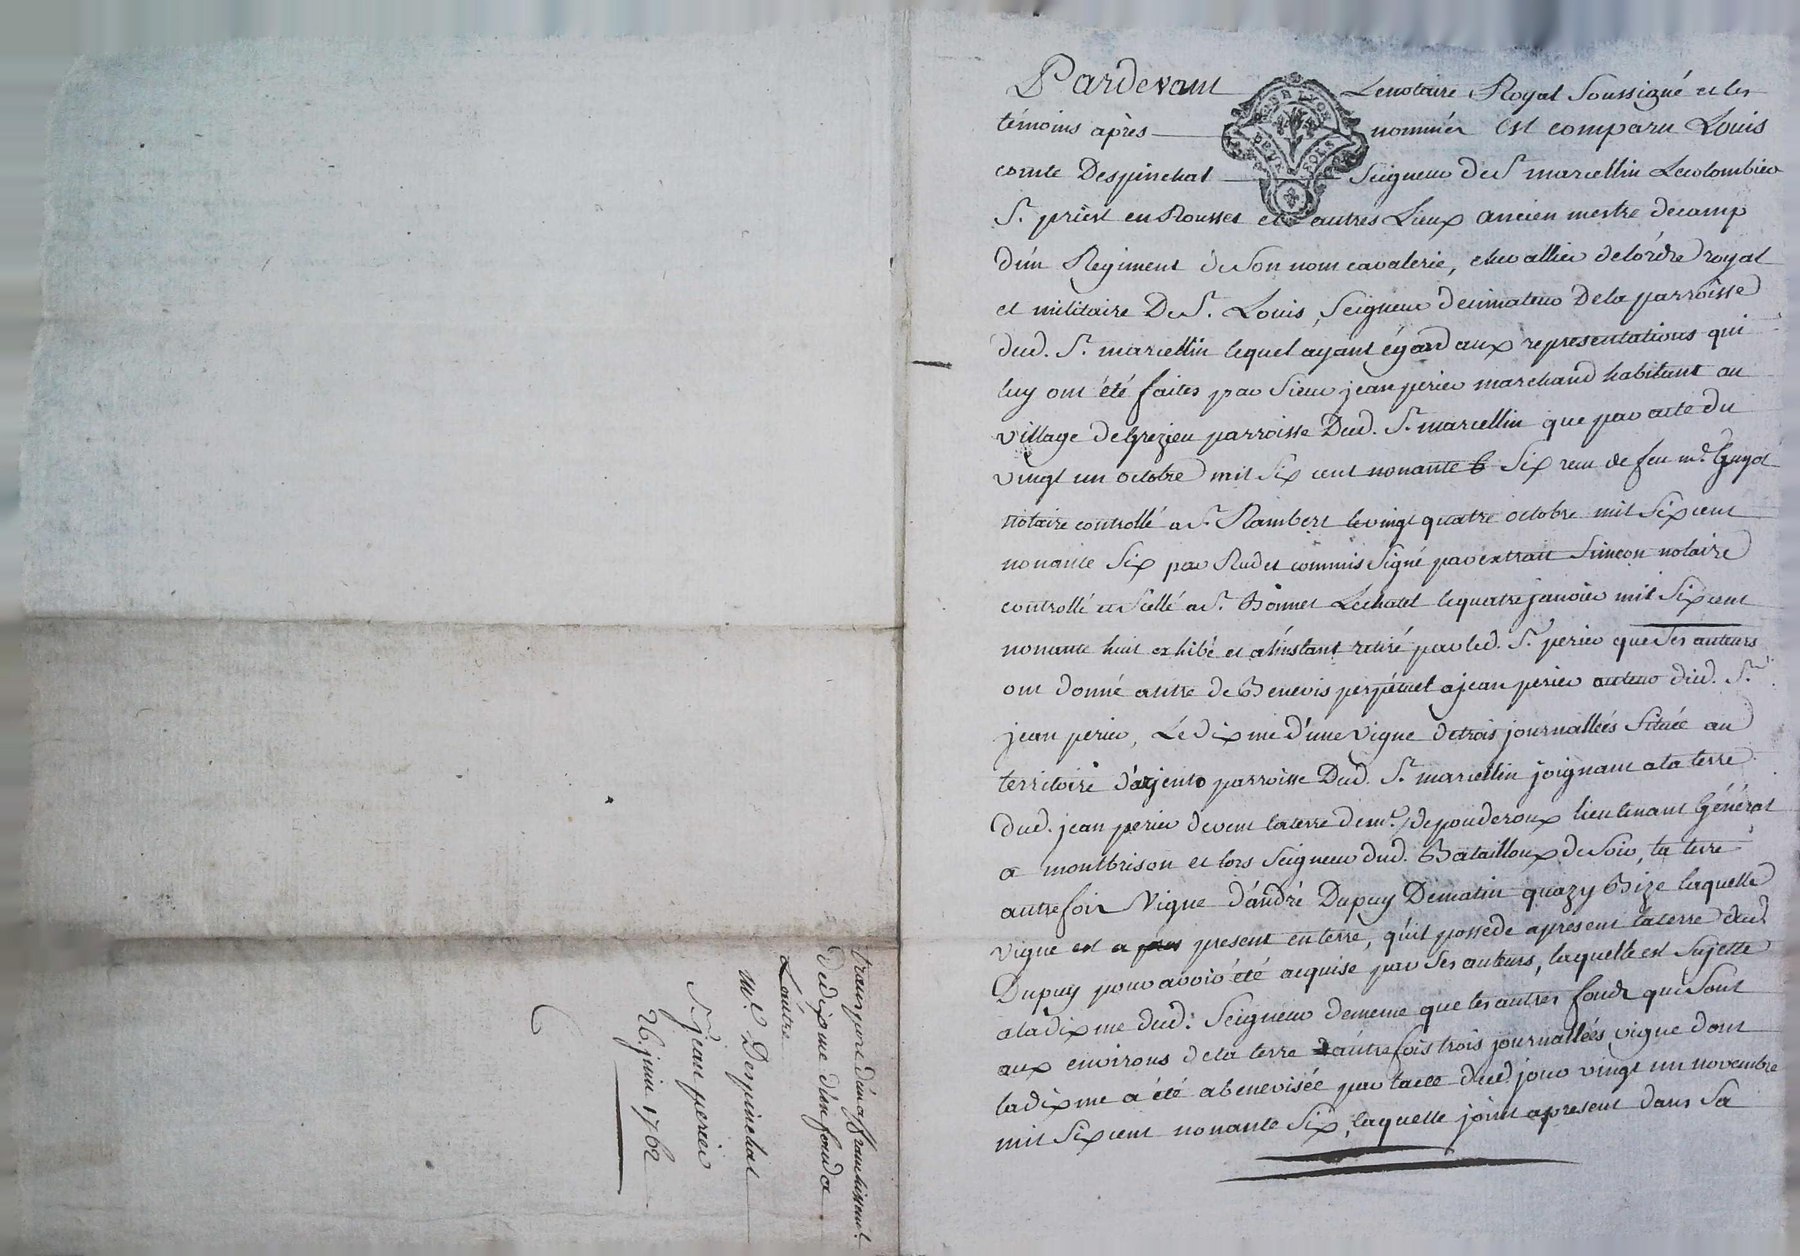 transport d'un affranchissemt.
de dixme d'un fond a
L'autre
Mr. Despinchal
Sr. jean perier
26. juin 1762
Pardevant Le notaire Royal Soussigné et les
témoins après nommés est comparu Louis
comte Despinchal Seigneur de St. marcellin Lecolombier
St. priest en Rousset et autres Lieux ancien mestre decamp
d'un Regiment de Son nom cavalerie, chevallier de l'ordre royal
et militaire De St. Louis, Seigneur decimateur De la parroisse
dud. St. marcellin lequel ayant égard aux representations qui
luy ont été faites par Sieur jean perier marchand habitant au
village de Grezieu parroisse Dud. St. marcellin que par acte du
vingt un octobre mil Six cent nonante Six reçu de feu me. Guyot
notaire controllé a St. Rambert le vingt quatre octobre mil Six cent
nonante Six par Rudet commis Signé par extrait Simeon notaire
controllé et Scellé a St. Bonnet Lechatel le quatre janvier mil Six cent
nonante huit exhibé et a l'instant retiré par led. Sr. perier que Ses auteurs
ont donné a titre de Benevis perpétuel a jean perier auteur dud. Sr.
jean perier, Le dixme d'une vigne de trois journallées Située au
territoire d'arjento parroisse Dud. St. marcellin joignant a la terre
dud. jean perier devent la terre de mr. de pouderoux lieutenant Général
a montbrison et lors Seigneur dud. Batailloux de Soir, la terre
autrefois Vigne d'andré Dupuy Dematin quazy Bize laquelle
vigne est a present en terre, qu'il possede apresent la terre dud.
Dupuy pour avoir été acquise par Ses auteurs, laquelle est Sujette
a la dixme dud. Seigneur de meme que les autres fonds qui Sont
aux environs de la terre autrefois trois journallées vigne dont
la dixme a été abenevisée par l'acte dud. jour vingt un novembre
mil Six cent nonante Six, laquelle joint apresent dans Sa